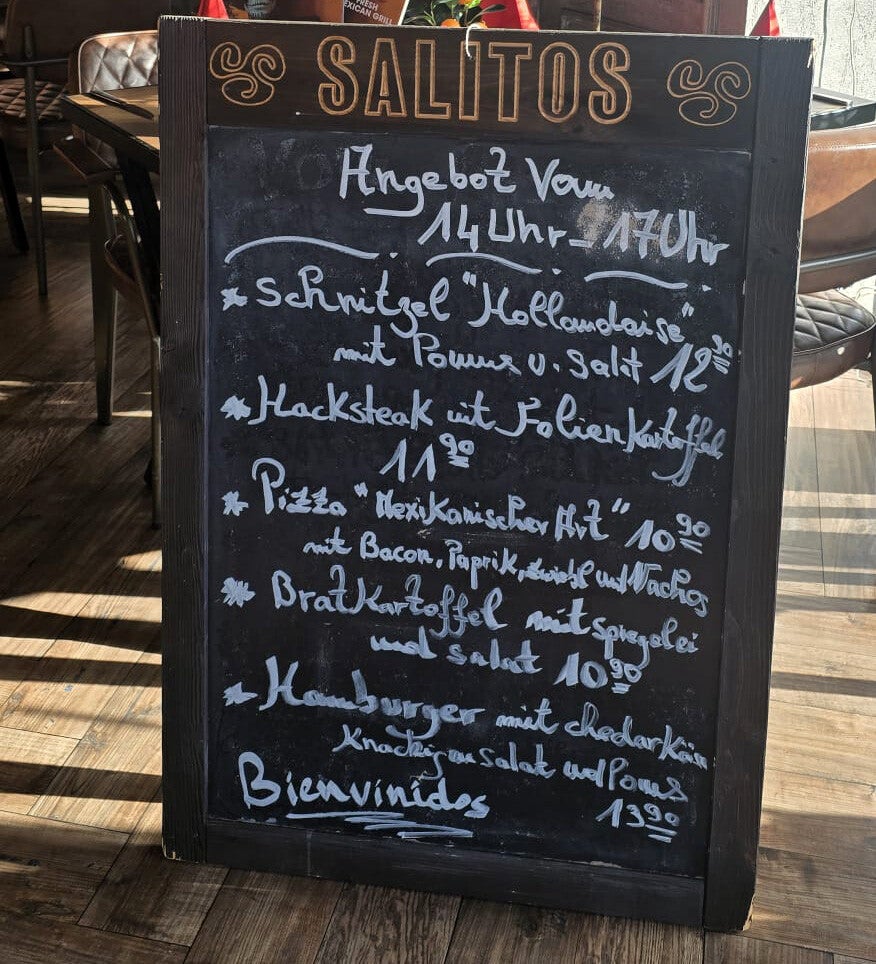 FRESH
MEXICAN GRILL
SALITOS
Angebot Vom
14 Uhr - 17 Uhr
* Schnitzel "Hollandaise"
mit Pommes u. Salat 12 90
* Hacksteak mit Folienkartoffel
11 90
* Pizza "Mexikanischer Art" 10 90
mit Bacon, Paprik, zwiebl und Nachos
* Bratkartoffel mit spiegelei
und Salat 10 90
* Hamburger mit chedarkäse
Knackigem salat und Pomes
13 90
Bienvinidos